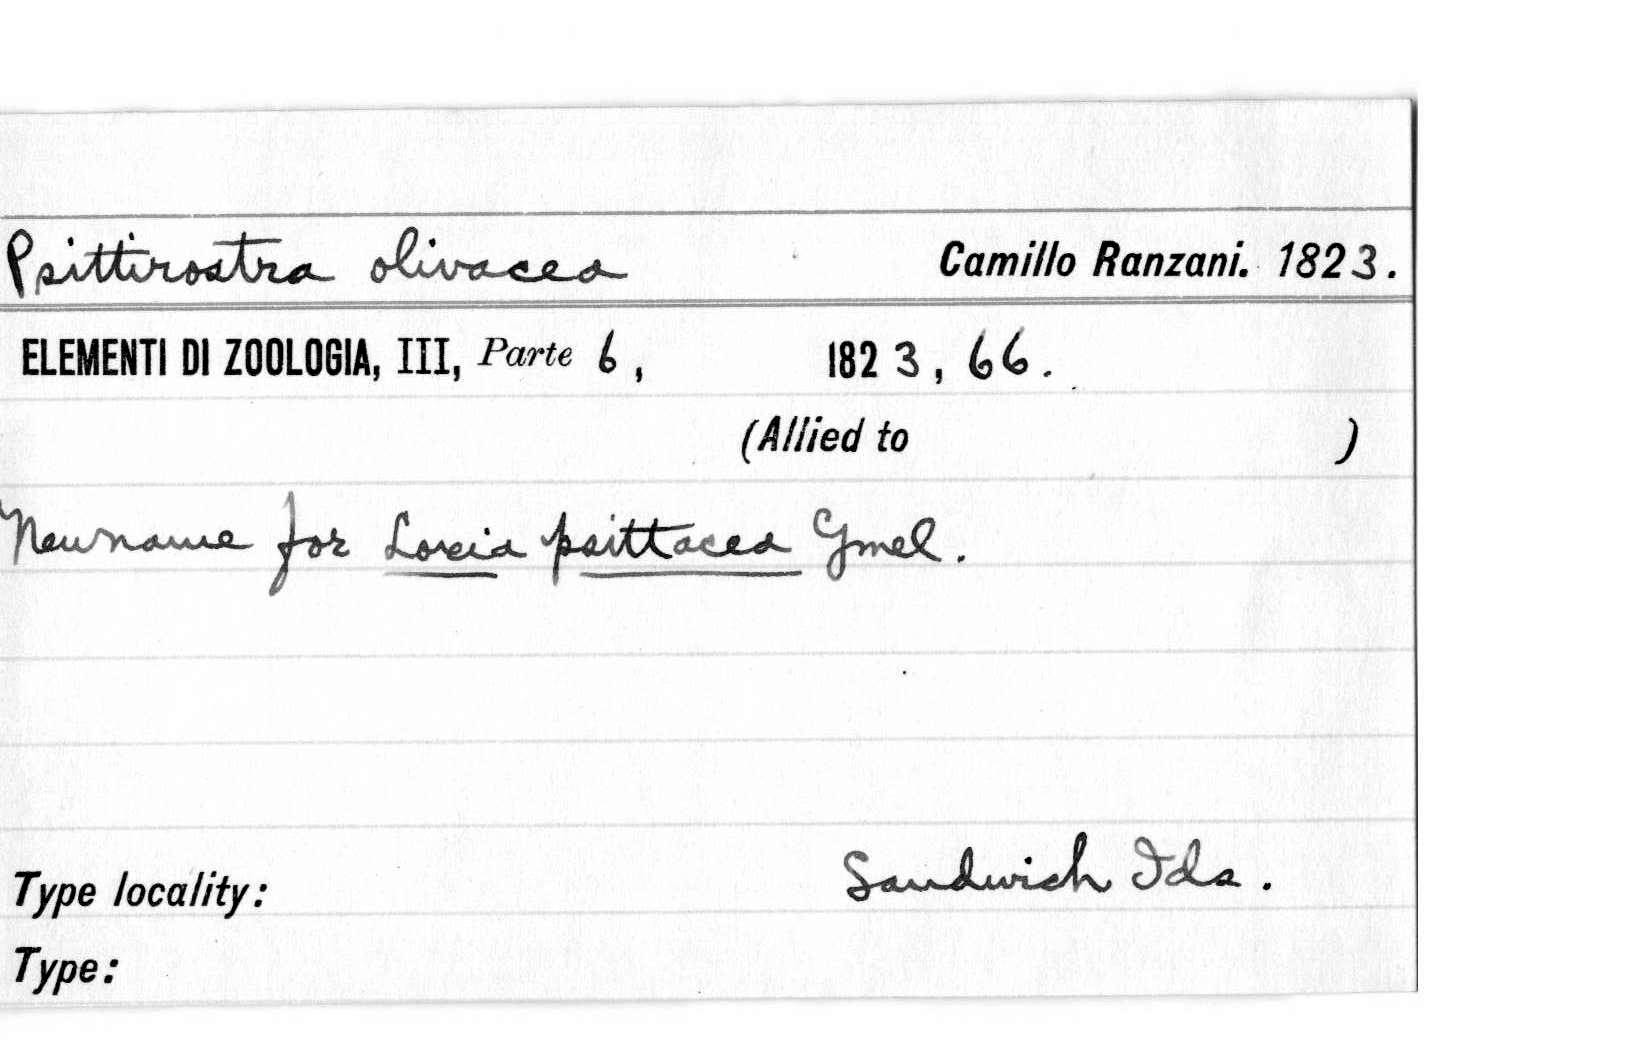 Psittirostra olivacea Camillo Ranzani. 1823.
ELEMENTI DI ZOOLOGIA, III, Parte 6, 1823, 66.
(Allied to )
New name for Loxia psittacea Gmel.
Type locality: Sandwich Ids.
Type: